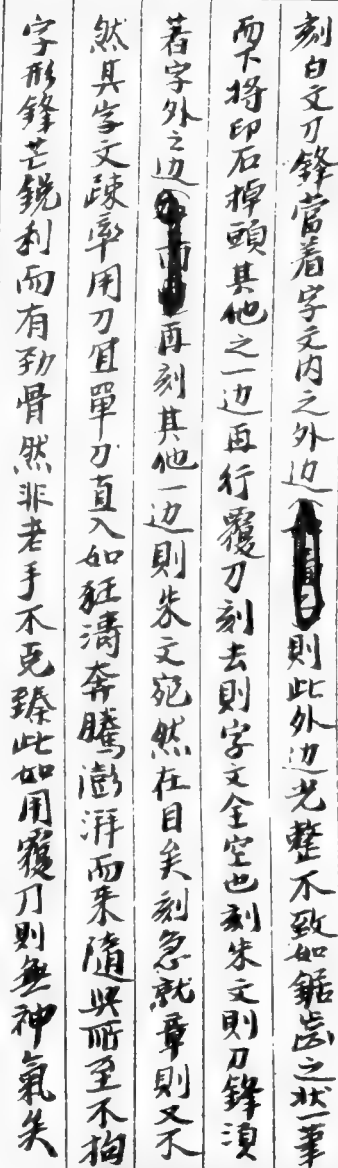 刻白文刀鋒當着字文内之外边則此外边光整不致如鋸齒之状一筆
而下将印石掉頭其他之一边再行覆刀刻去則字文全空也刻朱文則刀鋒須
着字外之边再刻其他一边則朱文宛然在目矣刻急就章則又不
然其字文疎率用刀宜單刀直入如狂濤奔騰澎湃而来隨興所至不拘
字形鋒芒銳利而有劲骨然非老手不克臻此如用覆刀則無神氣矣